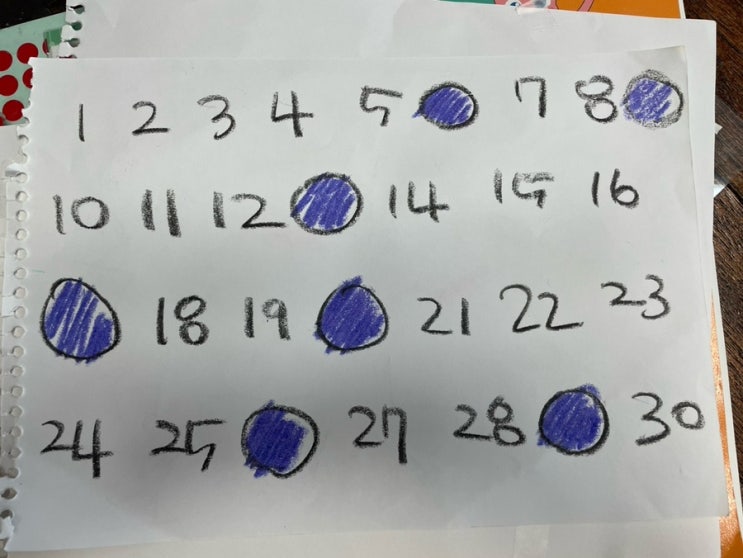 1 2 3 4 5 7 8
10 11 12 14 15 16
18 19 21 22 23
24 25 27 28 30